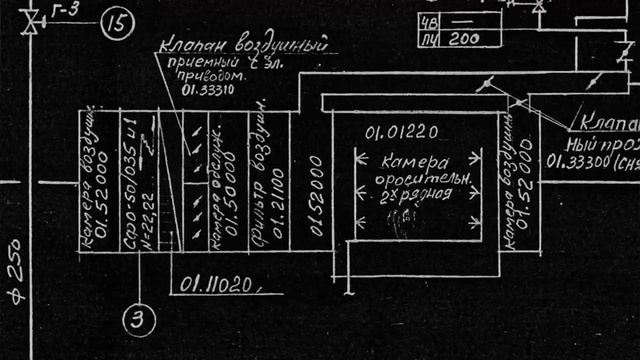 г-3
15
ЧВ —
ЛЧ 200
Клапан воздушный
приемный с эл.
приводом.
01.33310
Клапан
ный про
01.33300 (сня
Камера воздушн.
01.52000
Саро-50/035 и1
N=22,02
Камера обслуж.
01.50000
Фильтр воздушн.
01.21100
01.52000
01.01220
Камера
оросительн.
2х рядная
Камера воздушн
01.52000
01.11020,
3
ф 250